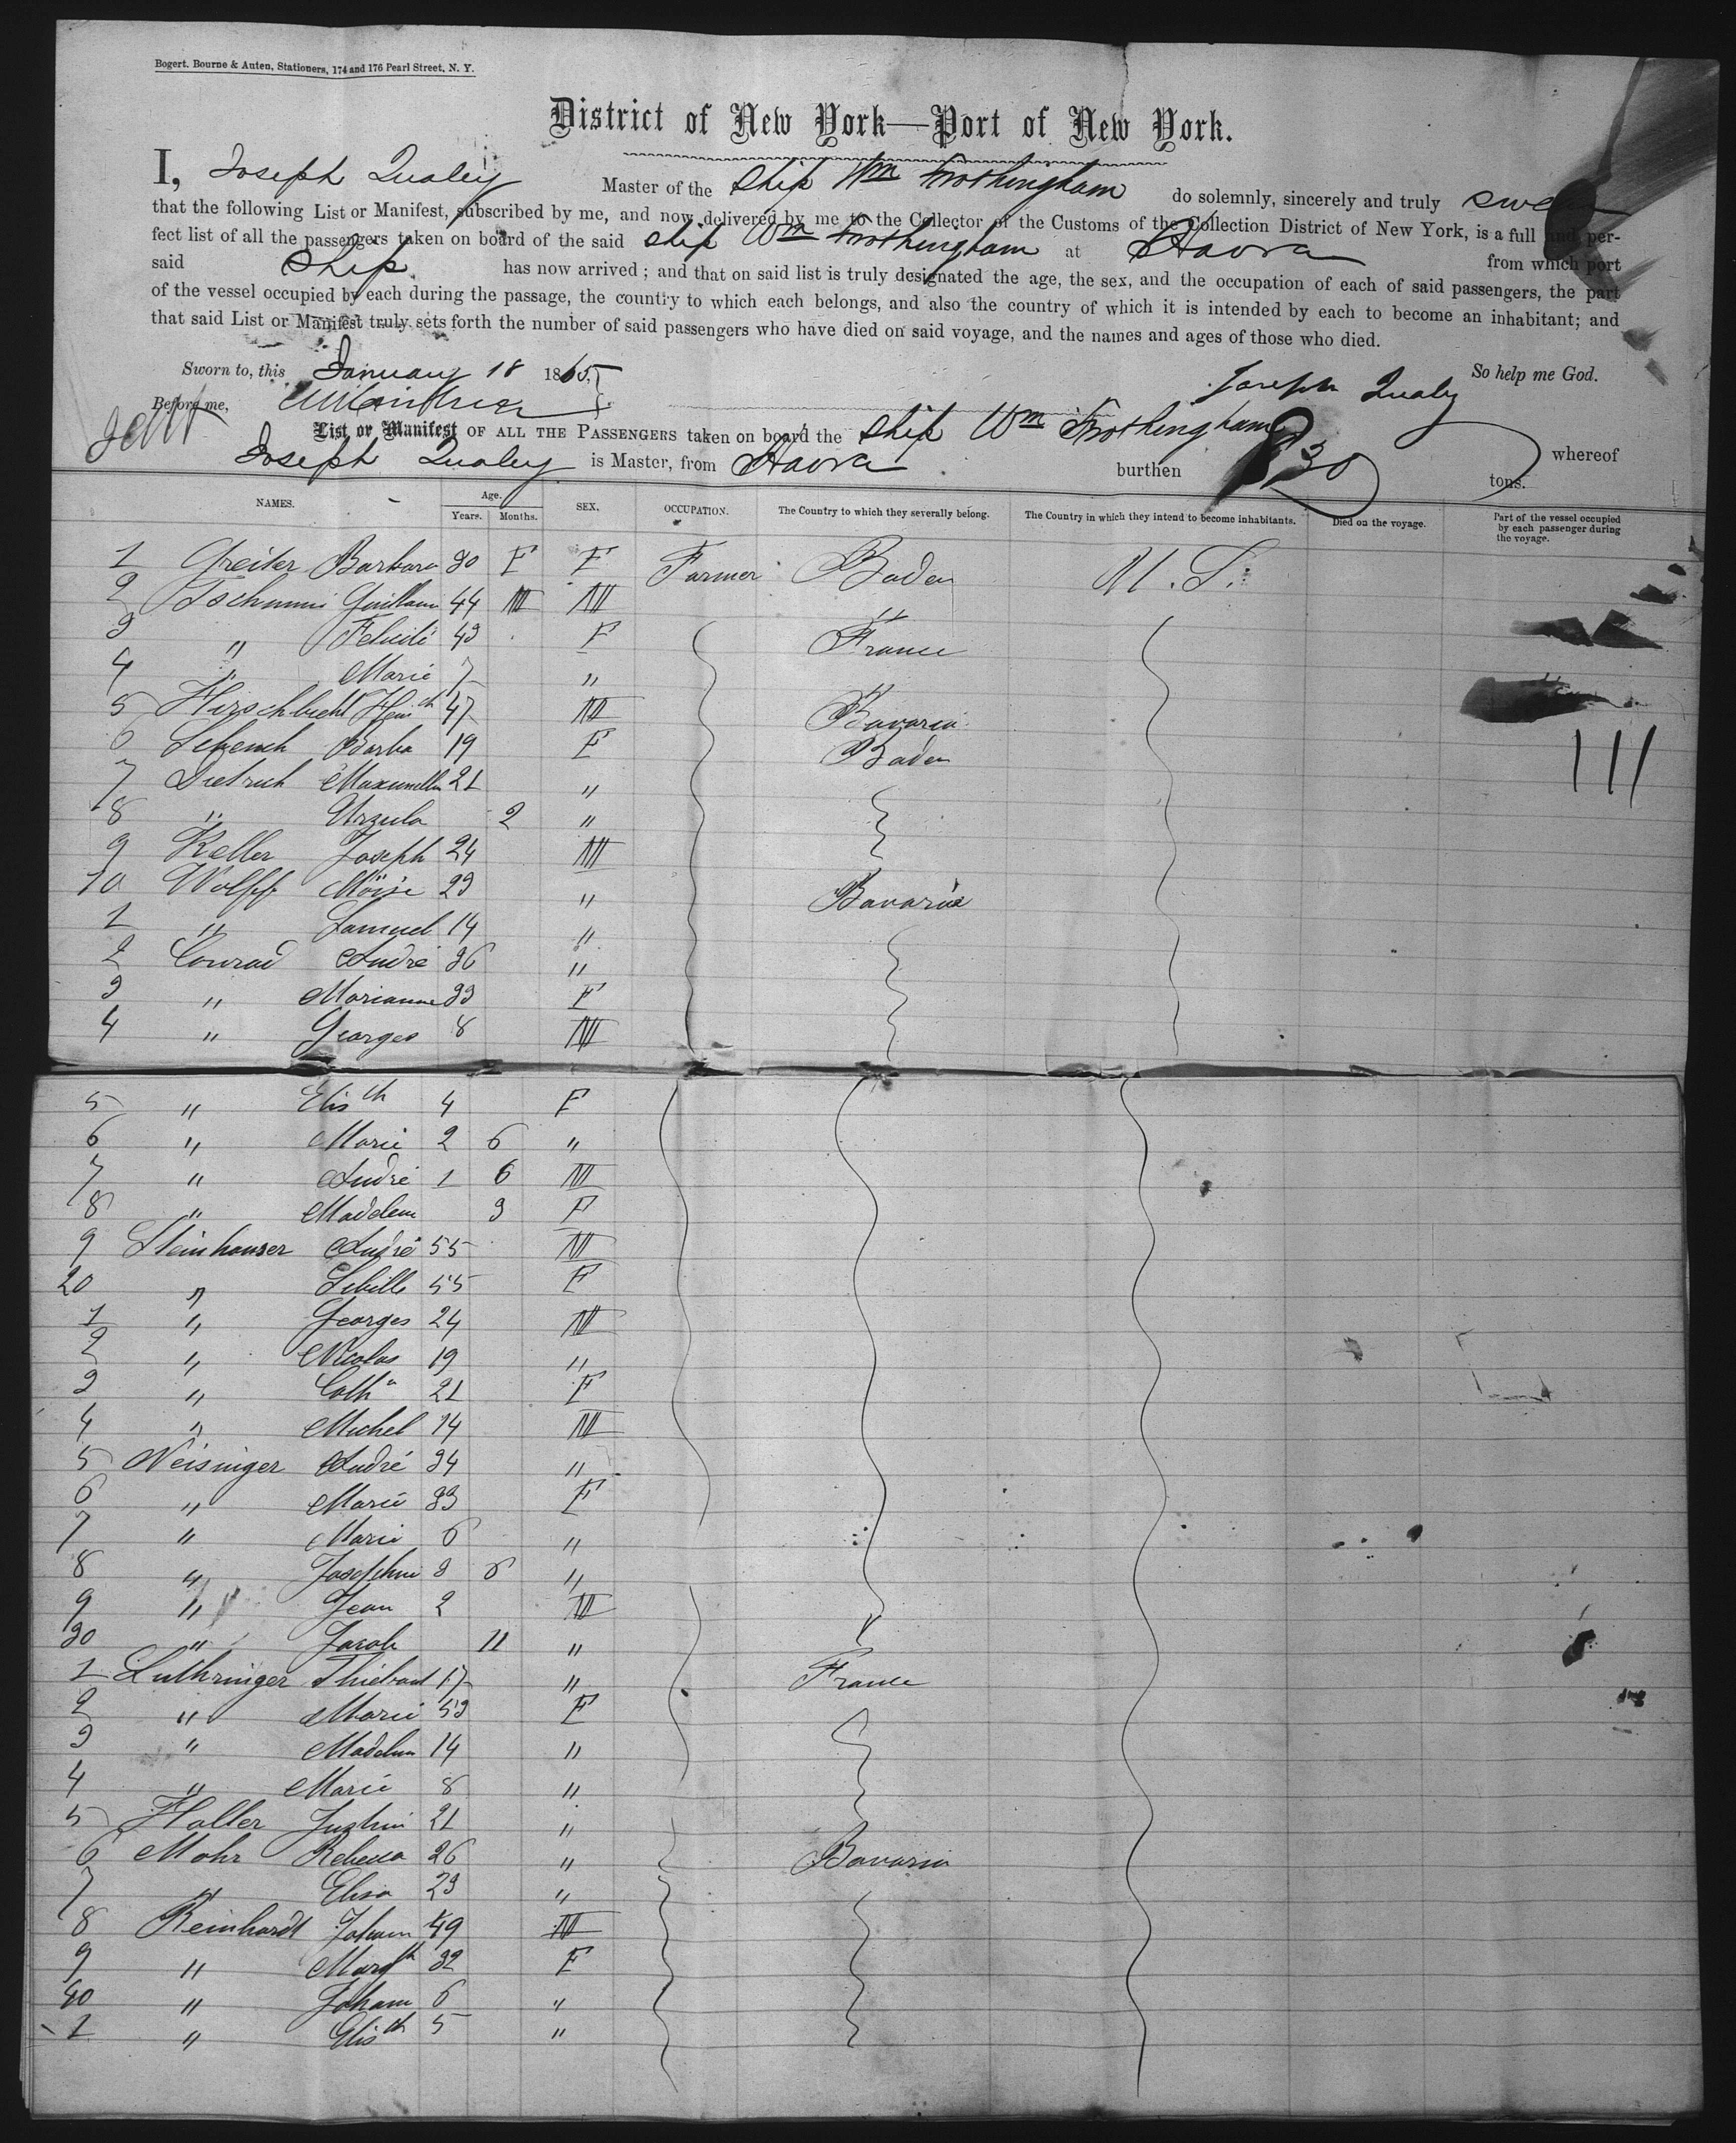 Bogert, Bourne & Auten, Stationers, 174 and 176 Pearl Street, N. Y.
District of New York—Port of New York.
I, Joseph Qualey Master of the Ship Wm Frothingham do solemnly, sincerely and truly swear
that the following List or Manifest, subscribed by me, and now delivered by me to the Collector of the Customs of the Collection District of New York, is a full and per-
fect list of all the passengers taken on board of the said Ship Wm Frothingham at Havra from which port
said Ship has now arrived; and that on said list is truly designated the age, the sex, and the occupation of each of said passengers, the part
of the vessel occupied by each during the passage, the country to which each belongs, and also the country of which it is intended by each to become an inhabitant; and
that said List or Manifest truly sets forth the number of said passengers who have died on said voyage, and the names and ages of those who died.
Sworn to, this January 18 1865. So help me God.
Joseph Qualey
Before me,
List or Manifest OF ALL THE PASSENGERS taken on board the Ship Wm Frothingham whereof
Joseph Qualey is Master, from Havra burthen 830 tons.
NAMES. Age. Years. Months. SEX. OCCUPATION. The Country to which they severally belong. The Country in which they intend to become inhabitants. Died on the voyage. Part of the vessel occupied by each passenger during the voyage.
1 Greiter Barbara 30 F F Farmer Baden U. S.
2 Tschumi Guillaum 44 M M "
3 " Felicité 43 F France
4 " Marie 7 " "
5 Hirschbiehl Heinch 47 M Bavaria
6 Schench Barba 19 F Baden
7 Dietrich Maximilla 21 "
8 " Urzula 2 "
9 Keller Joseph 24 M
10 Wolff Moïse 23 " Bavaria
1 " Samuel 14 "
2 Conrad André 36 "
3 " Marianne 33 F
4 " Georges 8 M
5 " Elisth 4 F
6 " Marie 2 6 "
7 " André 1 6 M
8 " Madelein 3 F
9 Steinhauser André 55 M
20 " Sibille 55 F
1 " Georges 24 M
2 " Nicolas 19 "
3 " Cathn 21 F
4 " Michel 14 M
5 Neisinger André 34 "
6 " Marie 33 F
7 " Marie 6 "
8 " Josephine 3 6 "
9 " Jean 2 M
30 " Jacob 11 " "
1 Luthringer Thiebaut 17 " France
2 " Marie 53 F
3 " Madelein 14 "
4 " Marie 8 "
5 Haller Justine 21 "
6 Mohr Rebecca 26 " Bavaria
7 " Elisa 23 "
8 Reinhardt Johann 49 M
9 " Margth 32 F
40 " Johann 6 "
1 " Elisth 5 "